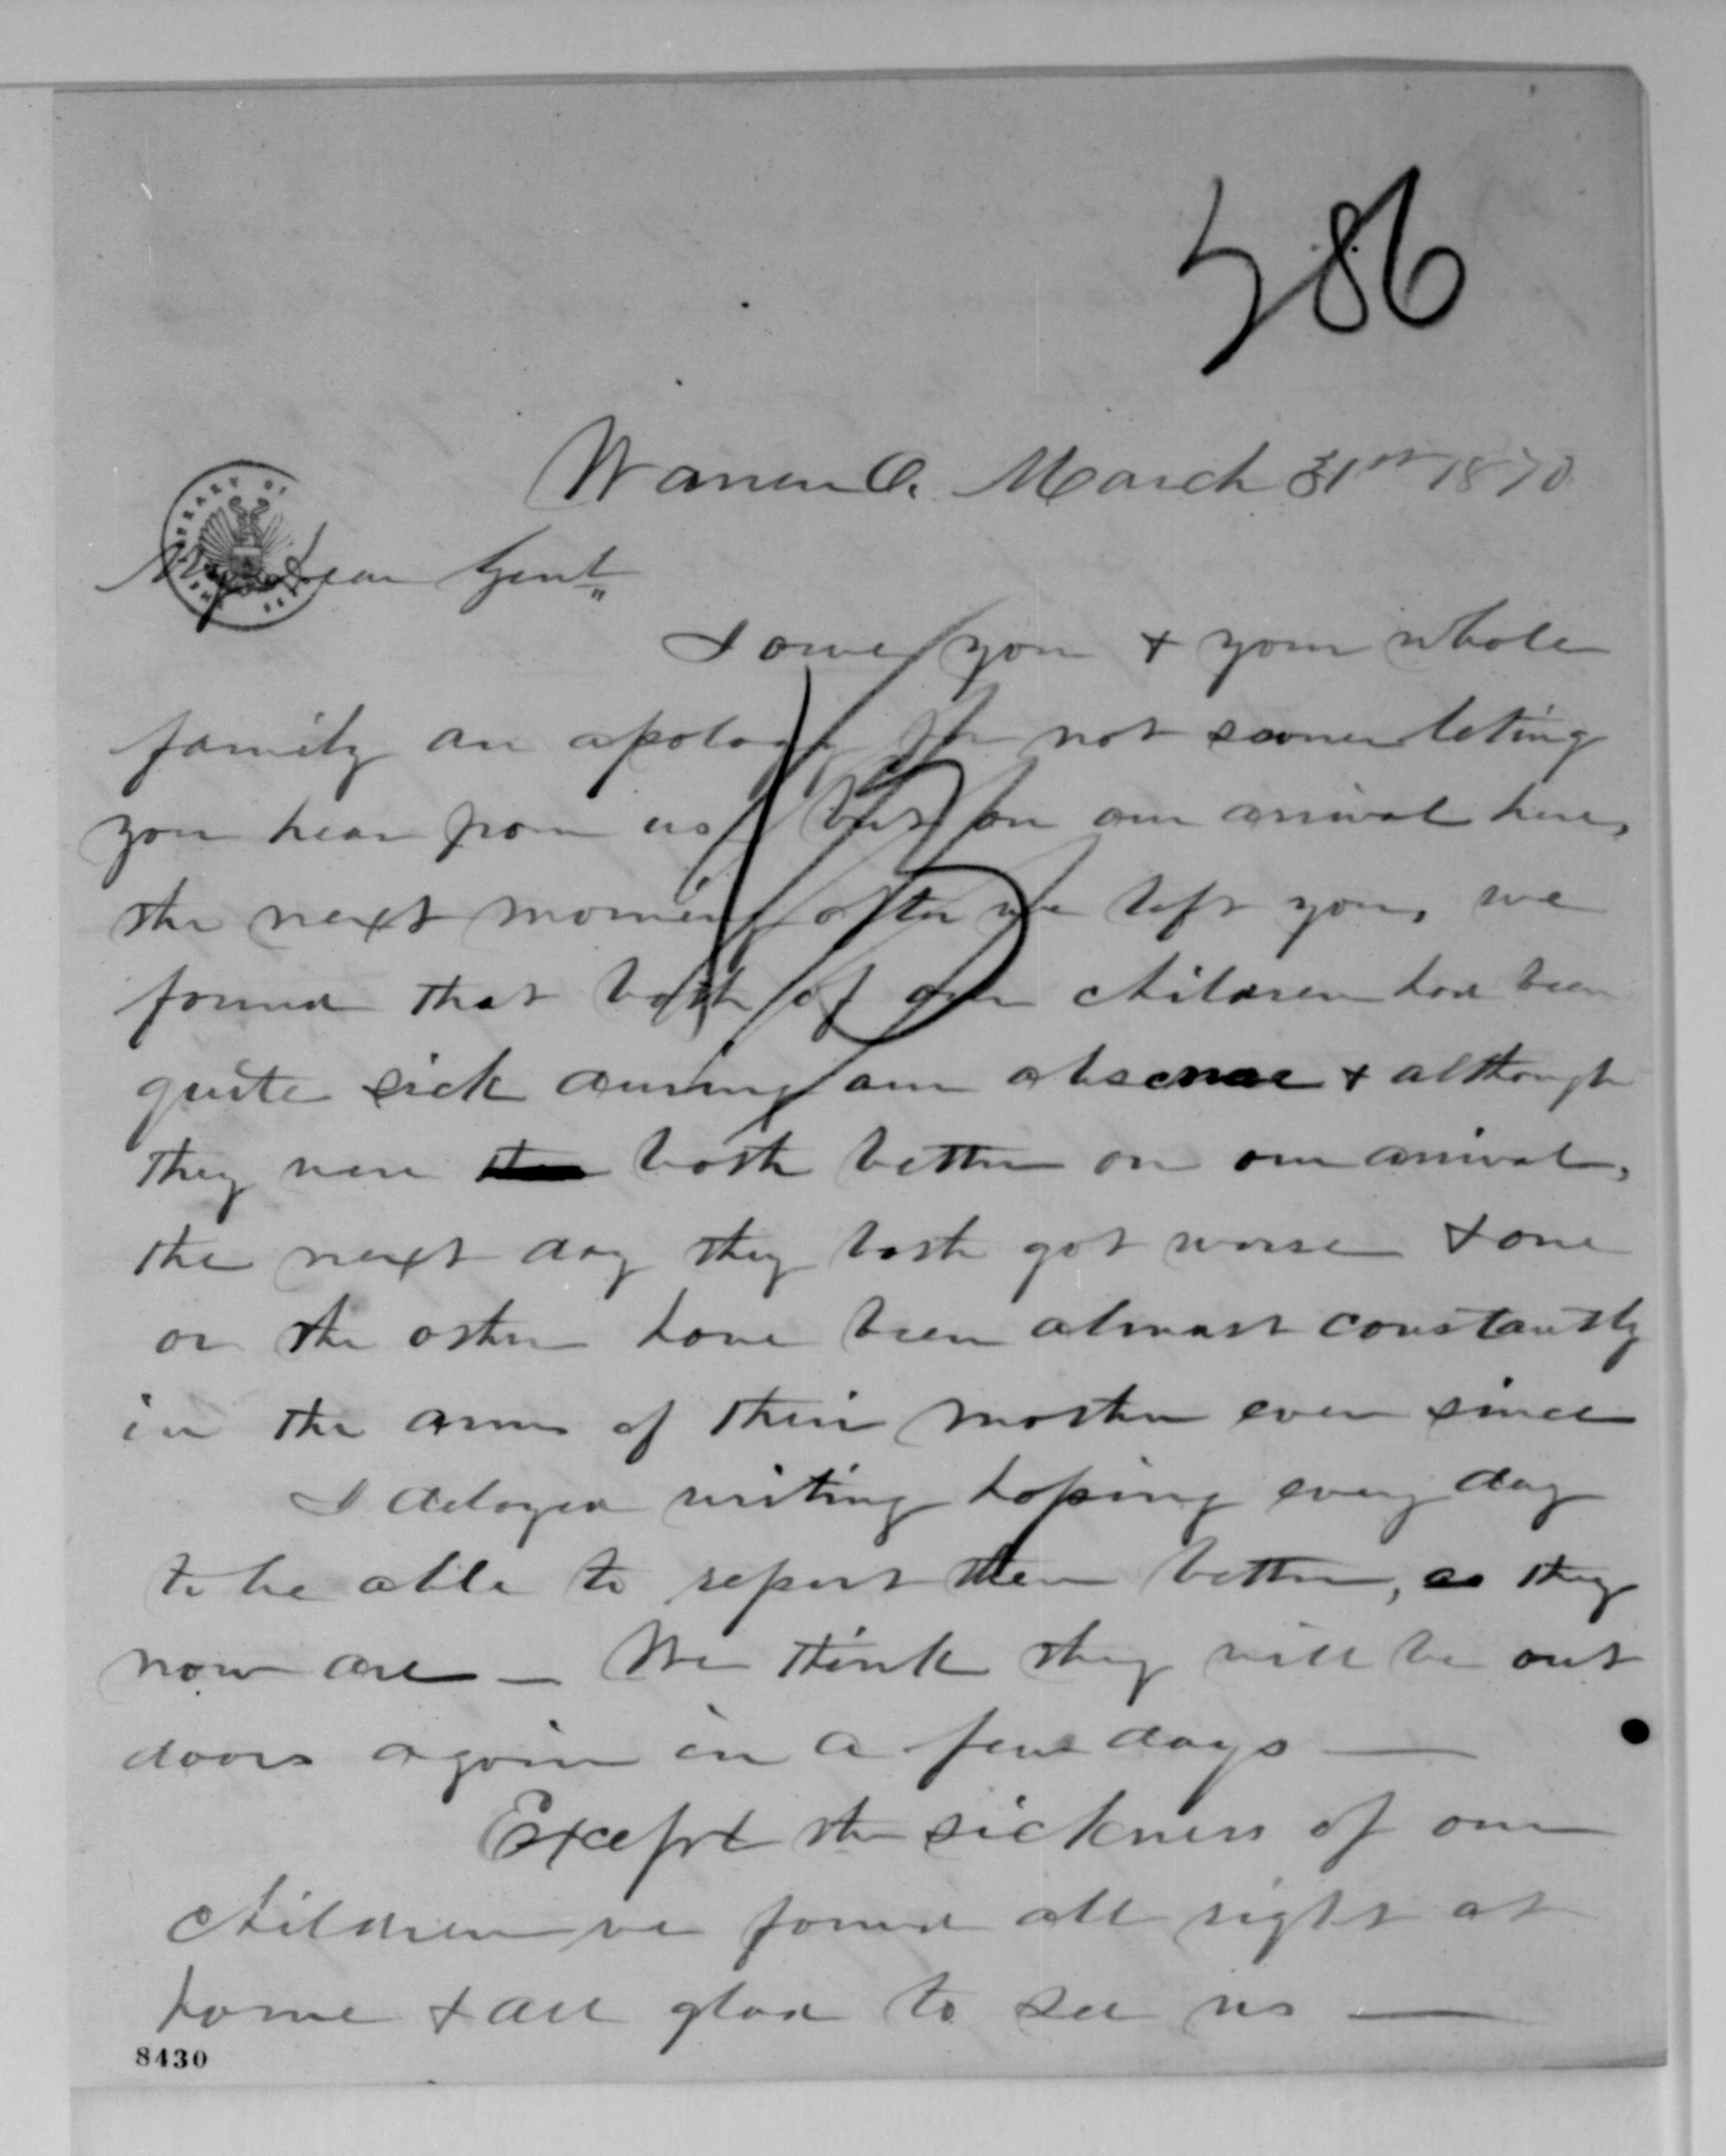 586
Warren O. March 31st 1870
My Dear Genl
I owe you + your whole
family an apology for not sooner leting
you hear from us, but on our arrival here,
the next morning after we left you, we
found that both of our children had been
quite sick during our absence + although
they were both better on our arrival,
the next day they both got worse + one
or the other have been almost constantly
in the arms of their mother ever since
I delayed writing hoping every day
to be able to report them better, as they
now are — We think they will be out
doors again in a few days —
Except the sickness of our
children we found all right at
home + all glad to see us —
8430